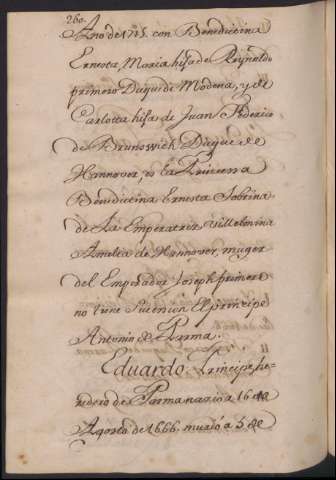 260.
Ano de 1715. con Benedictina
Ernesta, Maria hija de Reynaldo
primero Duque de Modena, y de
Carlotta hija de Juan Federico
de Brunswick Duque de
Hannover, es la Princesa
Benedictina Ernesta Sobrina
de La Emperatriz Villelmina
Amalia de Hannover, muger
del Emperador Joseph primero
no tiene Sucesion El principe
Antonio de Parma.
Eduardo, Principe he-
redero de Parma nacio a 16 de
Agosto de 1666. murio a 5 de